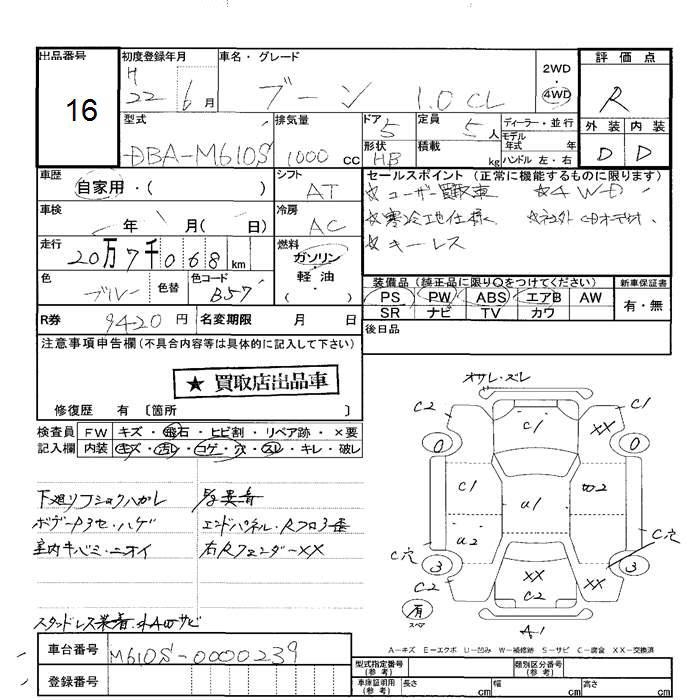 出品番号 初度登録年月 車名・グレード 評価点
16
H 22 6月 ブーン 1.0 CL 2WD 4WD R
外装 内装
D D
型式 排気量 ドア 定員 ディーラー・並行
DBA-M610S 1000 cc 5 5人 モデル年式 年
形状 HB 積載 kg ハンドル 左・右
車歴 シフト セールスポイント (正常に機能するものに限ります)
自家用・( ) AT
☆ユーザー買取車 ☆4WD
車検 冷房
年 月( 日) AC
☆寒冷地仕様 CDオーディオ
☆キーレス
走行 燃料
20万7千068km ガソリン・軽油 ( )
色 色替 色コード
ブルー B57
装備品 (純正品に限り○をつけてください) 新車保証書
PS PW ABS エアB AW 有・無
SR ナビ TV カワ
R券 9420円 名変期限 月 日
後日品
注意事項申告欄(不具合内容等は具体的に記入して下さい)
★ 買取店出品車
修復歴 有〔箇所 〕
検査員記入欄 FW キズ・飛石・ヒビ割・リペア跡・×要
内装 キズ・汚レ・コゲ・穴・スレ・キレ・破レ
下廻リフショクハガレ
ボデーハゲ エンドパネル・Rフロア歪
室内キバミ・ニオイ 右Rフェンダー××
スタッドレス装着 サビ
オサレ・ズレ
C2 C1
C1 XX
0 0
C1 U1
U2
C穴 C穴
3 3
XX XX
C2 C2
有 スペア
A1
A－キズ E－エクボ U－凹み W－補修跡 S－サビ C－腐食 XX－交換済
車台番号 M610S-0000239
登録番号
型式指定番号(参考) 類別区分番号(参考)
車庫証明用(参考) 長さ cm 幅 cm 高さ cm